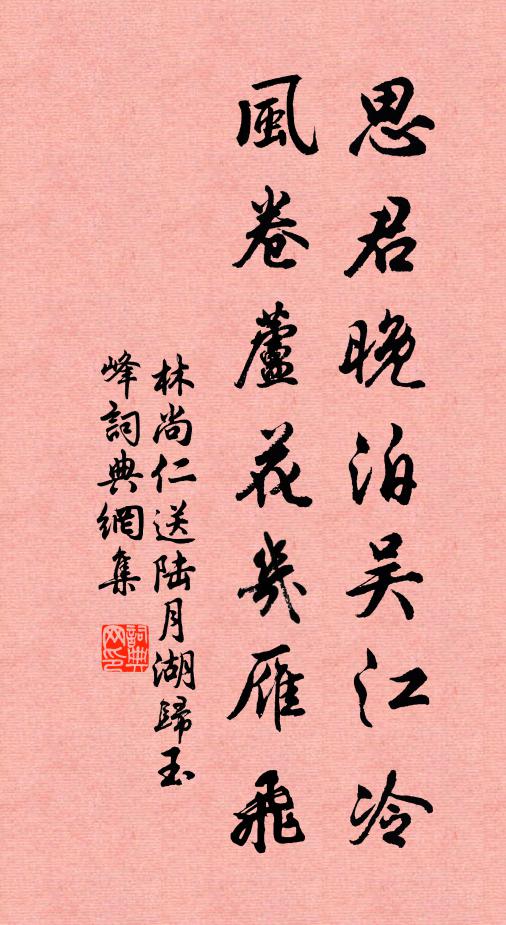 思君晚泊吴江冷
風卷蘆花幾雁飛
林尚仁送陆月湖歸玉
峰詞典網集
詞典
网印